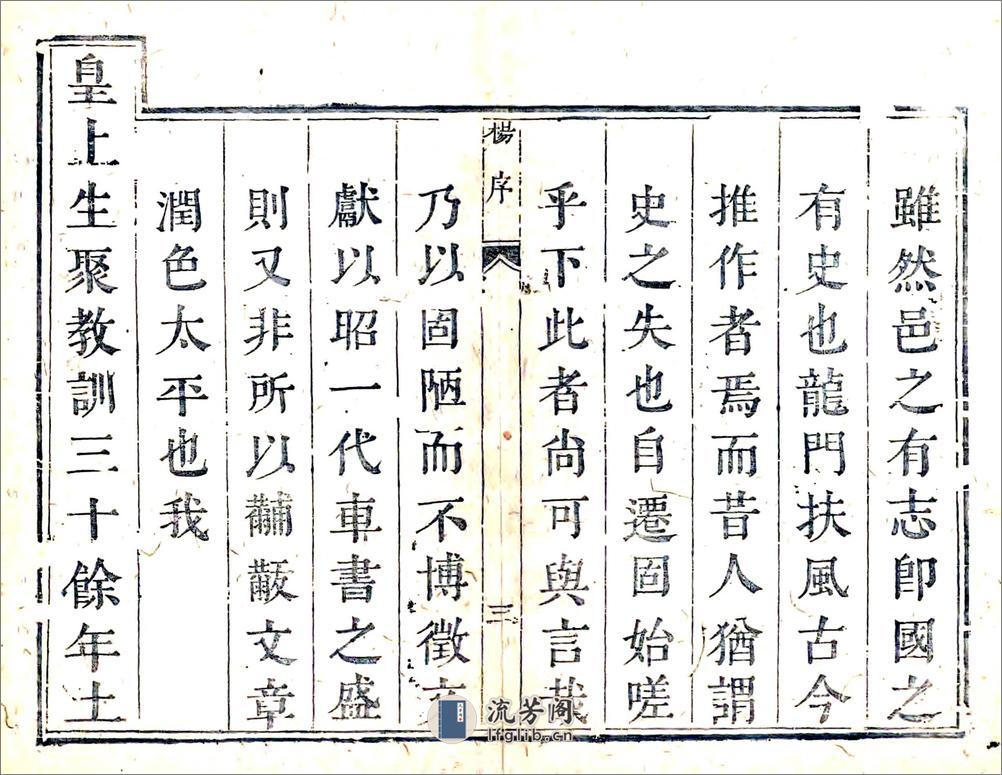 雖然邑之有志卽國之
有史也龍門扶風古今
推作者焉而昔人猶謂
史之失也自遷固始嗟
乎下此者尙可與言哉
楊序
三
乃以固陋而不博徵文
獻以昭一代車書之盛
則又非所以黼黻文章
潤色太平也我
皇上生聚教訓三十餘年土
流芳阁
lfglib.cn